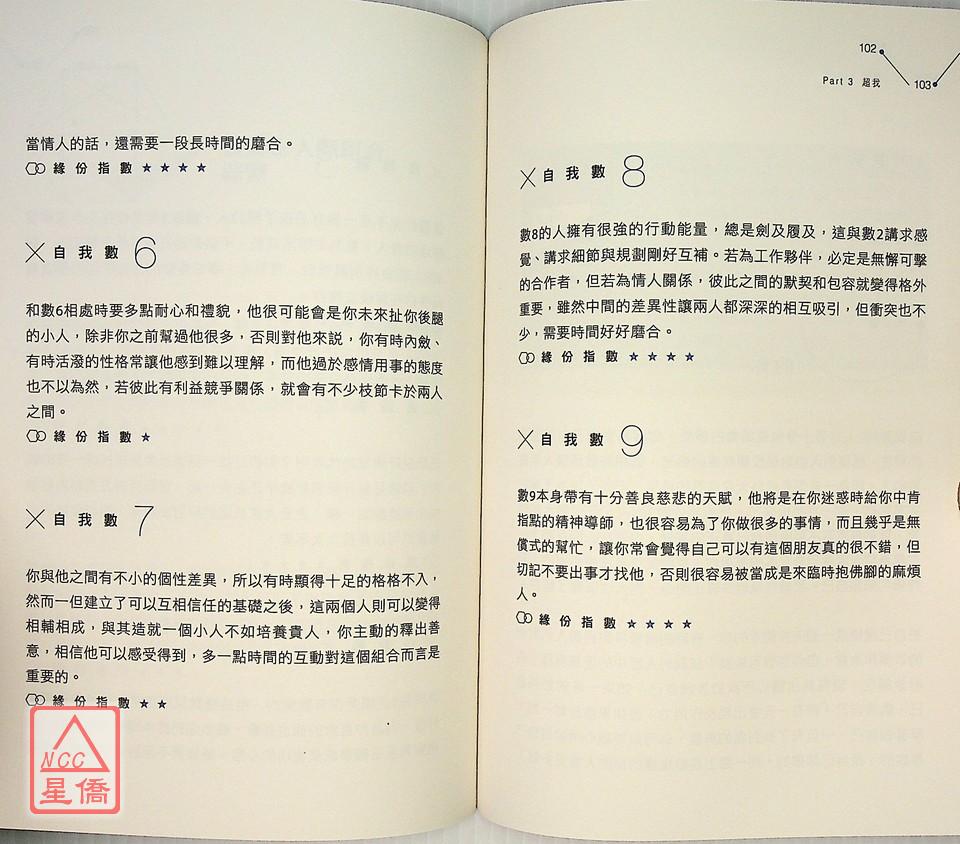 當情人的話，還需要一段長時間的磨合。
緣份指數★★★★
自我數 6
和數6相處時要多點耐心和禮貌，他很可能會是你未來扯你後腿
的小人，除非你之前幫過他很多，否則對他來說，你有時內斂、
有時活潑的性格常讓他感到難以理解，而他過於感情用事的態度
也不以為然，若彼此有利益競爭關係，就會有不少枝節卡於兩人
之間。
緣份指數★
自我數 7
你與他之間有不小的個性差異，所以有時顯得十足的格格不入，
然而一但建立了可以互相信任的基礎之後，這兩個人則可以變得
相輔相成，與其造就一個小人不如培養貴人，你主動的釋出善
意，相信他可以感受得到，多一點時間的互動對這個組合而言是
重要的。
緣份指數★★
NCC
星僑
102
Part 3 超我
103
自我數 8
數8的人擁有很強的行動能量，總是劍及履及，這與數2講求感
覺、講求細節與規劃剛好互補。若為工作夥伴，必定是無懈可擊
的合作者，但若為情人關係，彼此之間的默契和包容就變得格外
重要，雖然中間的差異性讓兩人都深深的相互吸引，但衝突也不
少，需要時間好好磨合。
緣份指數★★★★
自我數 9
數9本身帶有十分善良慈悲的天賦，他將是在你迷惑時給你中肯
指點的精神導師，也很容易為了你做很多的事情，而且幾乎是無
償式的幫忙，讓你常會覺得自己可以有這個朋友真的很不錯，但
切記不要出事才找他，否則很容易被當成是來臨時抱佛腳的麻煩
人。
緣份指數★★★★